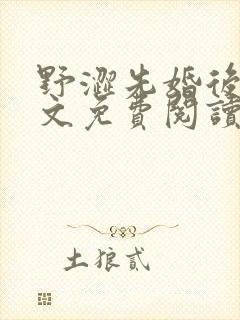 野澀先婚後
文免費閱讀
土狼貳